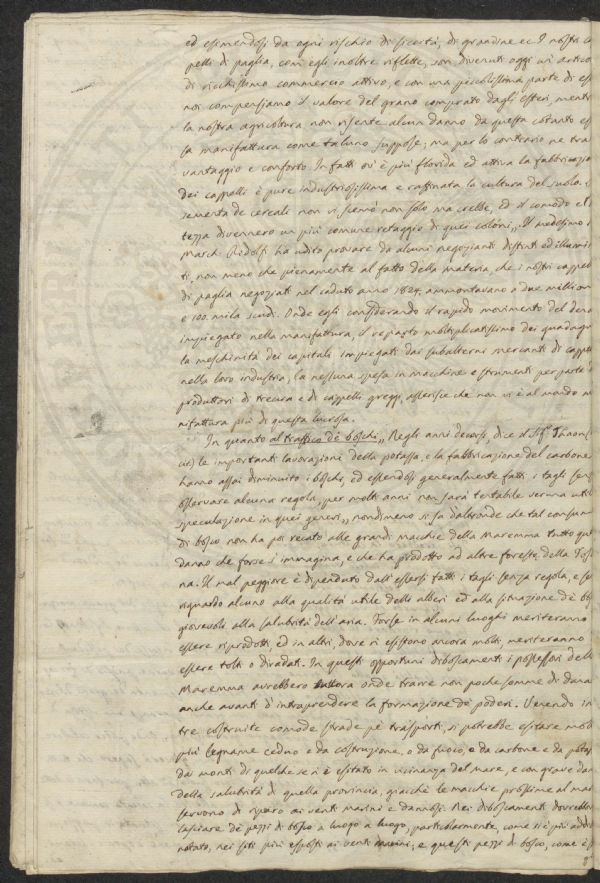 ed esimendosi da ogni rischio di siccità, di grandine ec. I nostri ca
pelli di paglia, com'egli inoltre riflette, son divenuti oggi un artico
di ricchissimo commercio attivo, e con una piccolissima parte di es
noi compensiamo il valore del grano comprato dagli esteri, mentre
la nostra agricoltura non risente alcun danno da questa cotanto es
sa manifattura come taluno suppose; ma per lo contrario ne tra
vantaggio e conforto. In fatti ov'è più florida ed attiva la fabbricazio
dei cappelli è pure industriosissima e raffinata la cultura del suolo.
sementa de cereali non vi scemò non solo ma crebbe, ed il comodo e l
tezza divennero un più comune retaggio di quei coloni„ Il medesimo
March. Ridolfi ha udito provare da alcuni negozianti distinti ed illumin
ti, non meno che pienamente al fatto della materia, che i nostri cappel
di paglia negoziati nel caduto anno 1824. ammontavano a due milion
e 100. mila scudi. Onde egli considerando il rapido movimento del dena
impiegato nella manifattura, il reparto moltiplicatissimo dei guadagni
la meschinità dei capitali impiegati dai subalterni mercanti di cappe
nella loro industria, la nessuna spesa in macchine e strumenti per parte
produttori di trecce e di cappelli greggi, asserisce che non vi è al mondo m
nifattura più di questa lucrosa.
In quanto al traffico de boschi„ Negli anni decorsi, dice il Sig.
cit.) le importanti lavorazioni della potassa, e la fabbricazione del carbone
hanno assai diminuito i boschi, ed essendosi generalmente fatti i tagli senz
osservare alcuna regola, per molti anni non sarà tentabile veruna util
speculazione in quei generi„ nondimeno si sa d'altronde che tal consum
di bosco non ha poi recato alle grandi macchie della Maremma tutto quel
danno che forse s'immagina, e che ha prodotto ad altre foreste della Tos
na. Il mal peggiore è dipenduto dall'essersi fatti i tagli senza regola, e sen
riguardo alcuno alla qualità utile delli alberi ed alla situazione de bos
giovevoli alla salubrità dell'aria. Forse in alcuni luoghi meriteranno
essere riprodotti, ed in altri, dove vi esistono ancora molti, meriteranno
essere tolti o diradati. In questi opportuni disboscamenti i possessori dell
Maremma avrebbero tuttora onde trarre non poche somme di dana
anche avanti d'intraprendere la formazione de poderi. Venendo in
tre costruite comode strade pe trasporti, si potrebbe esitare mol
più legname ceduo e da costruzione, o da fuoco, e da carbone e da potas
dai monti di quel che se n'è esitato in vicinanza del mare, e con grave dan
della salubrità di quella provincia, giacchè le macchie prossime al mar
servono di riparo ai venti marini e dannosi. Nei disboscamenti dovrebber
lasciare de pezzi di bosco a luogo a luogo, particolarmente, come si è più addie
notato, nei siti più esposti ai venti marini, e questi pezzi di bosco, come è